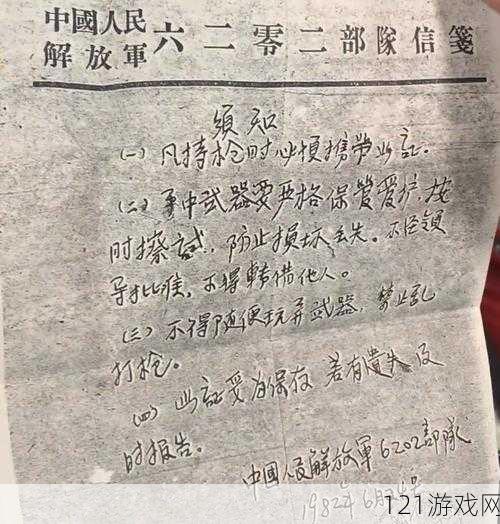 中國人民
解放軍 六二零二部隊信箋
須知
(一) 凡持枪时必須携带此証.
(二) 手中武器要严格保管爱护, 按
时擦拭, 防止损坏丢失。不经領
导批准, 不得轉借他人。
(三) 不得随便玩弄武器, 禁止乱
打枪。
(四) 此証妥为保存 若有遺失 及
时报告。
中國人民解放軍6202部隊
1982年6月
121游戏网